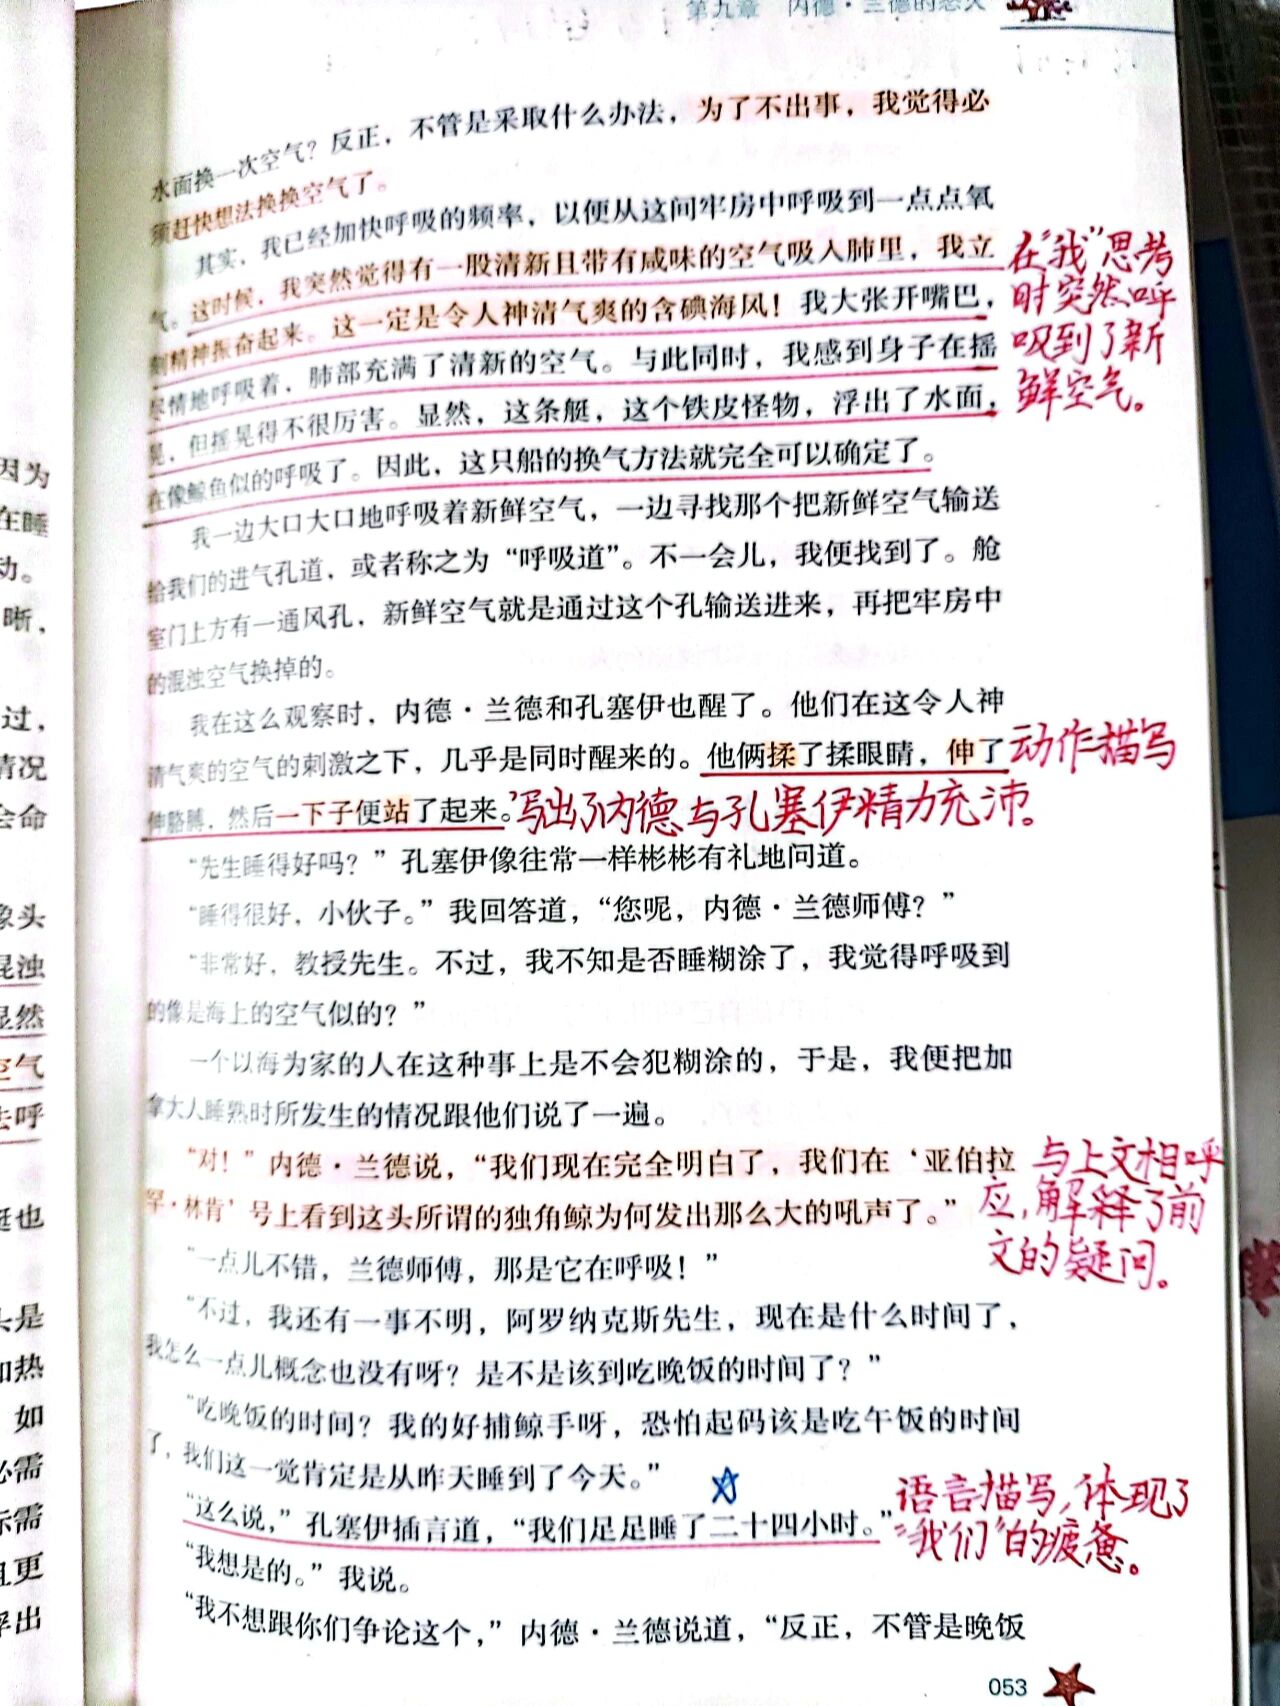 第九章 内德·兰德的怒火
水面换一次空气？反正，不管是采取什么办法，为了不出事，我觉得必
须赶快想法换换空气了。
其实，我已经加快呼吸的频率，以便从这间牢房中呼吸到一点点氧
气。这时候，我突然觉得有一股清新且带有咸味的空气吸入肺里，我立
刻精神振奋起来。这一定是令人神清气爽的含碘海风！我大张开嘴巴，
尽情地呼吸着，肺部充满了清新的空气。与此同时，我感到身子在摇
晃，但摇晃得不很厉害。显然，这条艇，这个铁皮怪物，浮出了水面，
在像鲸鱼似的呼吸了。因此，这只船的换气方法就完全可以确定了。
在“我”思考
时突然呼
吸到了新
鲜空气。
我一边大口大口地呼吸着新鲜空气，一边寻找那个把新鲜空气输送
给我们的进气孔道，或者称之为“呼吸道”。不一会儿，我便找到了。舱
室门上方有一通风孔，新鲜空气就是通过这个孔输送进来，再把牢房中
的混浊空气换掉的。
我在这么观察时，内德·兰德和孔塞伊也醒了。他们在这令人神
清气爽的空气的刺激之下，几乎是同时醒来的。他俩揉了揉眼睛，伸了
伸胳膊，然后一下子便站了起来。
动作描写
写出了内德与孔塞伊精力充沛。
“先生睡得好吗？”孔塞伊像往常一样彬彬有礼地问道。
“睡得很好，小伙子。”我回答道，“您呢，内德·兰德师傅？”
“非常好，教授先生。不过，我不知是否睡糊涂了，我觉得呼吸到
的像是海上的空气似的？”
一个以海为家的人在这种事上是不会犯糊涂的，于是，我便把加
拿大人睡熟时所发生的情况跟他们说了一遍。
“对！”内德·兰德说，“我们现在完全明白了，我们在‘亚伯拉
罕·林肯’号上看到这头所谓的独角鲸为何发出那么大的吼声了。”
与上文相呼
应，解释了前
文的疑问。
“一点儿不错，兰德师傅，那是它在呼吸！”
“不过，我还有一事不明，阿罗纳克斯先生，现在是什么时间了，
我怎么一点儿概念也没有呀？是不是该到吃晚饭的时间了？”
“吃晚饭的时间？我的好捕鲸手呀，恐怕起码该是吃午饭的时间
了，我们这一觉肯定是从昨天睡到了今天。”
“这么说，”孔塞伊插言道，“我们足足睡了二十四小时。”
语言描写，体现了
“我们”的疲惫。
“我想是的。”我说。
“我不想跟你们争论这个，”内德·兰德说道，“反正，不管是晚饭
053
因为
在睡
动。
晰，
过，
情况
会命
象头
混浊
显然
空气
去呼
艇也
头是
如热
如
必需
际需
且更
浮出